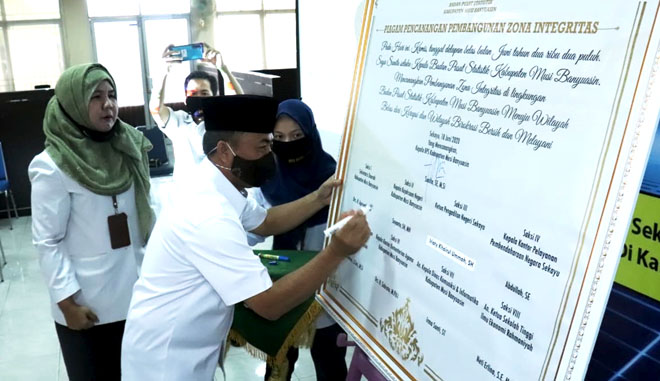 BADAN PUSAT STATISTIK
KABUPATEN MUSI BANYUASIN
PIAGAM PENCANANGAN PEMBANGUNAN ZONA INTEGRITAS
Pada Hari ini Kamis, tanggal delapan belas bulan Juni tahun dua ribu dua puluh,
Saya Sunita selaku Kepala Badan Pusat Statistik Kabupaten Musi Banyuasin,
Mencanangkan Pembangunan Zona Integritas di lingkungan
Badan Pusat Statistik Kabupaten Musi Banyuasin Menuju Wilayah
Bebas dari Korupsi dan Wilayah Birokrasi Bersih dan Melayani
Sekayu, 18 Juni 2020
Yang Mencanangkan
Kepala BPS Kabupaten Musi Banyuasin
SE, M.Si
Saksi I
Sekretaris Daerah
Kabupaten Musi Banyuasin
Saksi II
Kepala Kejaksaan Negeri
Kabupaten Musi Banyuasin
SH, MH
Saksi III
Ketua Pengadilan Negeri Sekayu
Ummah, SH
Saksi IV
Kepala Kantor Pelayanan
Perbendaharaan Negara Sekayu
Abdullah, SE
Saksi VI
Kabupaten Musi Banyuasin
Saksi VII
An. Kepala Dinas Komunikasi & Informatika
Kabupaten Musi Banyuasin
Saksi VIII
An. Ketua Sekolah Tinggi
Ilmu Ekonomi Rahmaniyah
Sek
Di Ka